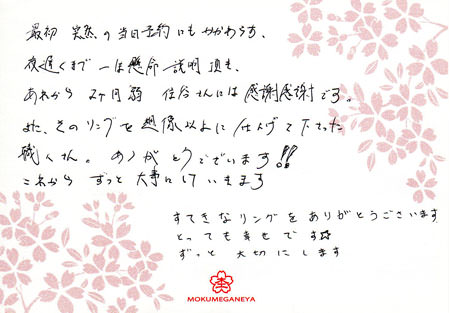 最初 突然の当日予約にもかかわらず、
夜遅くまで 一生懸命 説明頂き、
あれから 2ヶ月弱 住谷さんには感謝感謝です。
また、そのリングを想像以上に仕上げて下さった
職人さん。ありがとうございます!!
これから ずっと大事にしていきます
すてきなリングをありがとうございます
とっても幸せです☆
ずっと大切にします
MOKUMEGANEYA